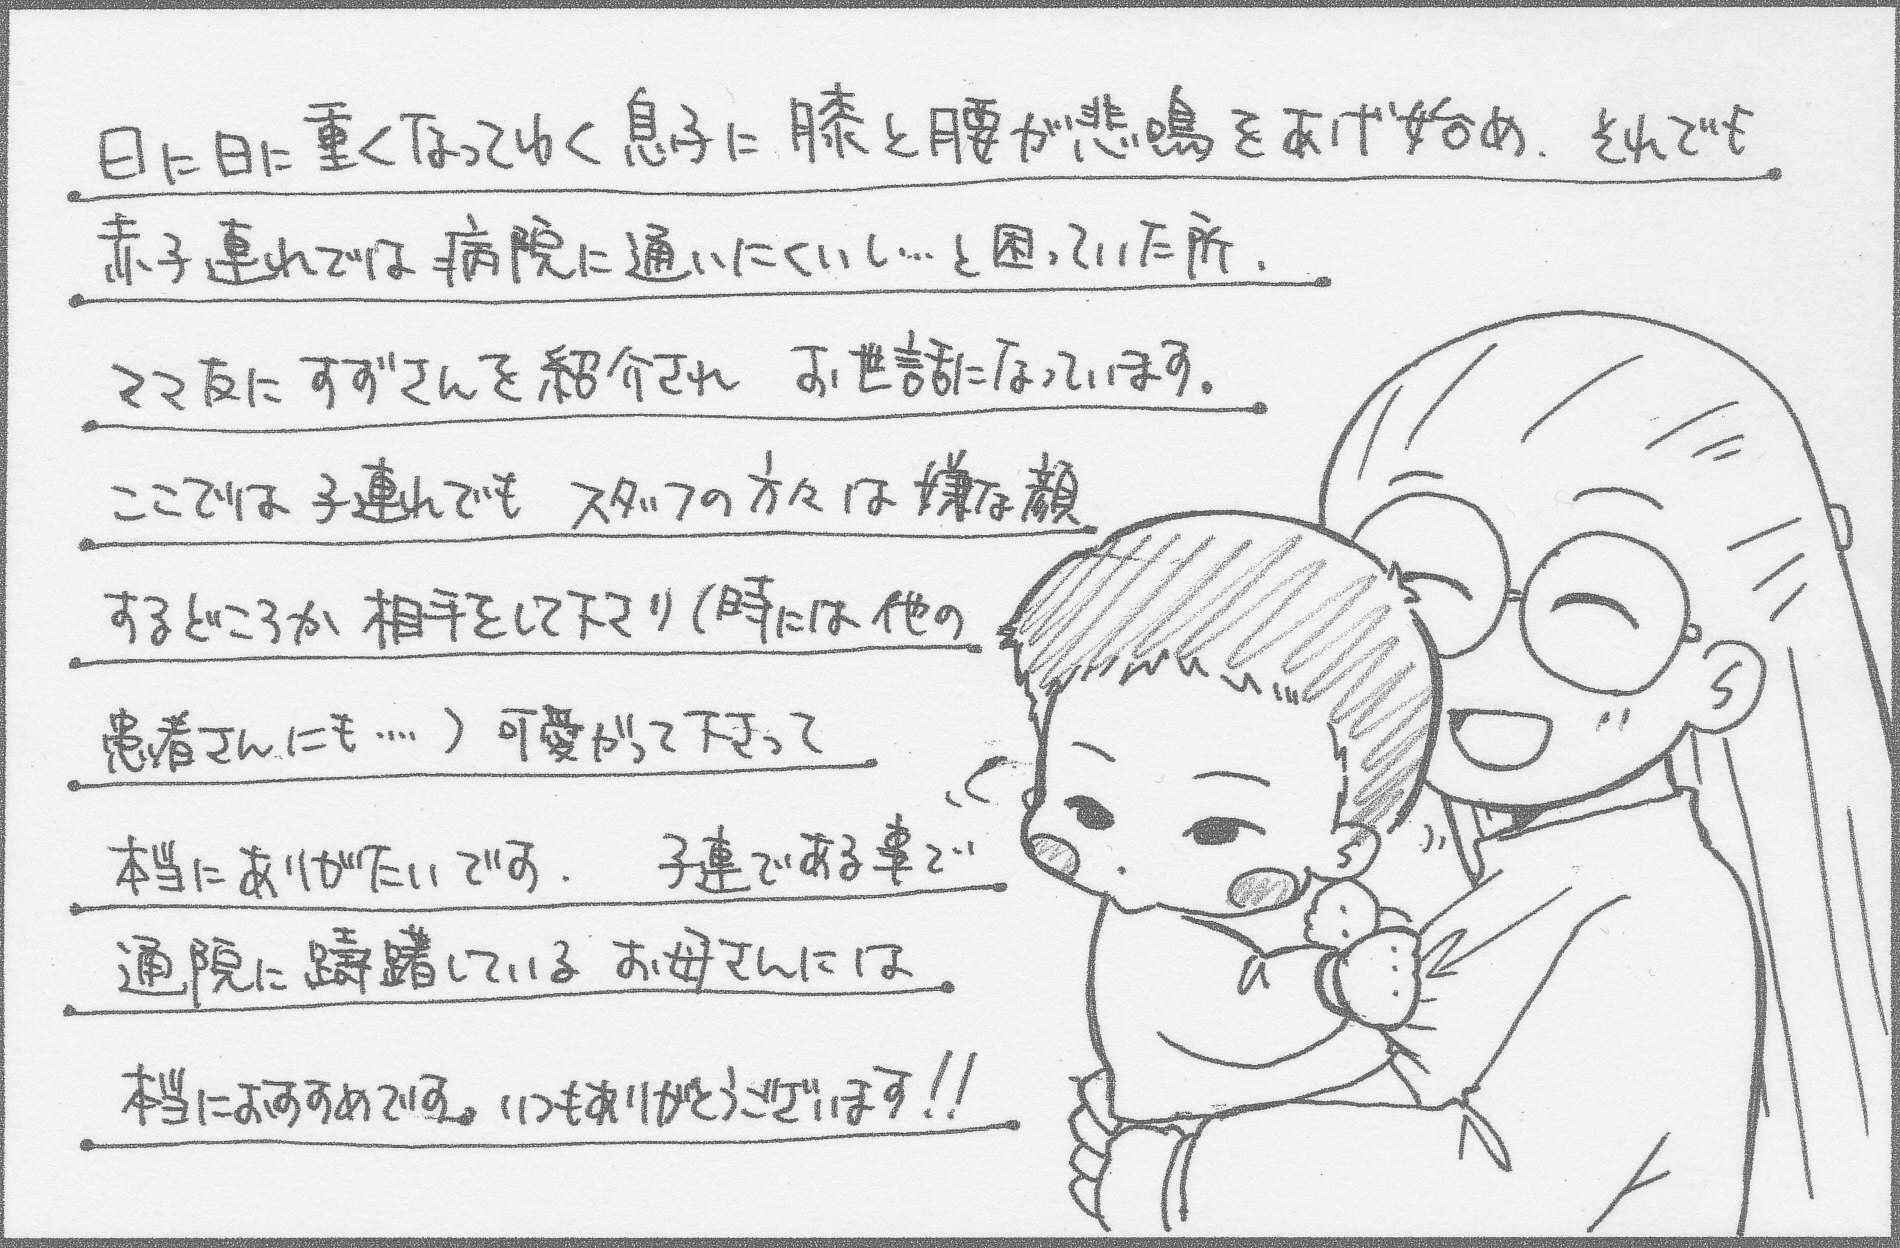 日に日に重くなってゆく息子に膝と腰が悲鳴をあげ始め、それでも
赤子連れでは病院に通いにくいし…と困っていた所、
ママ友にすずさんを紹介され お世話になっています。
ここでは子連れでも スタッフの方々は嫌な顔
するどころか相手をして下さり(時には他の
患者さんにも‥‥)可愛がって下さって
本当にありがたいです. 子連である事で
通院に躊躇している お母さんには
本当におすすめです。いつもありがとうございます!!